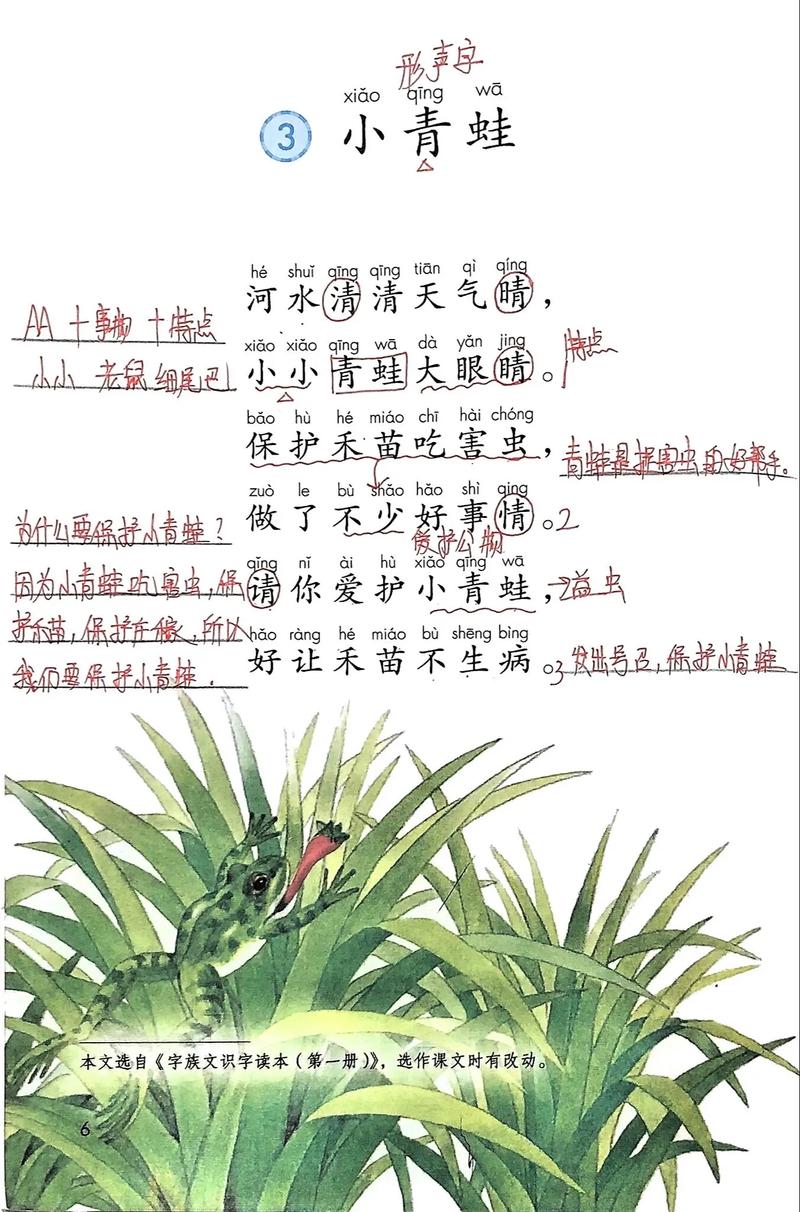 形声字
xiǎo qīng wā
3 小青蛙
hé shuǐ qīng qīng tiān qì qíng
河水清清天气晴，
AA + 事物 + 特点
xiǎo xiǎo qīng wā dà yǎn jing
小小青蛙大眼睛。
特点
小小 老鼠 细尾巴
bǎo hù hé miáo chī hài chóng
保护禾苗吃害虫，
青蛙是捉害虫的好帮手。
zuò le bù shǎo hǎo shì qing
做了不少好事情。2
为什么要保护小青蛙？
爱护公物
qǐng nǐ ài hù xiǎo qīng wā
请你爱护小青蛙，
→益虫
因为小青蛙吃害虫，保
护禾苗，保护庄稼，所以
我们要保护小青蛙.
hǎo ràng hé miáo bù shēng bìng
好让禾苗不生病。
3 发出号召，保护小青蛙
本文选自《字族文识字读本（第一册）》，选作课文时有改动。
6